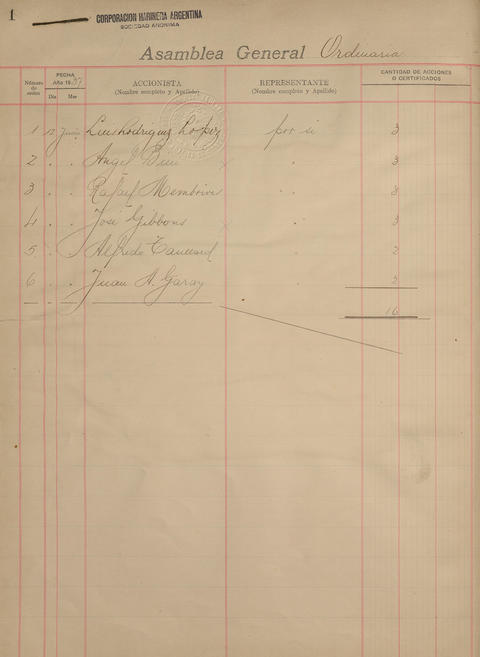 1
CORPORACION MARINERA ARGENTINA
SOCIEDAD ANONIMA
Asamblea General Ordinaria
Número de orden
FECHA
Año 1937
Día Mes
ACCIONISTA
(Nombre completo y Apellido)
REPRESENTANTE
(Nombre completo y Apellido)
CANTIDAD DE ACCIONES
O CERTIFICADOS
1 12 Junio Luis Rodriguez Lopez por si 3
2 " " Angel " 3
3 " " Rafael " 3
4 " " José Gibbons " 3
5 " " Alfredo " 2
6 " " Juan A. Garay " 2
16